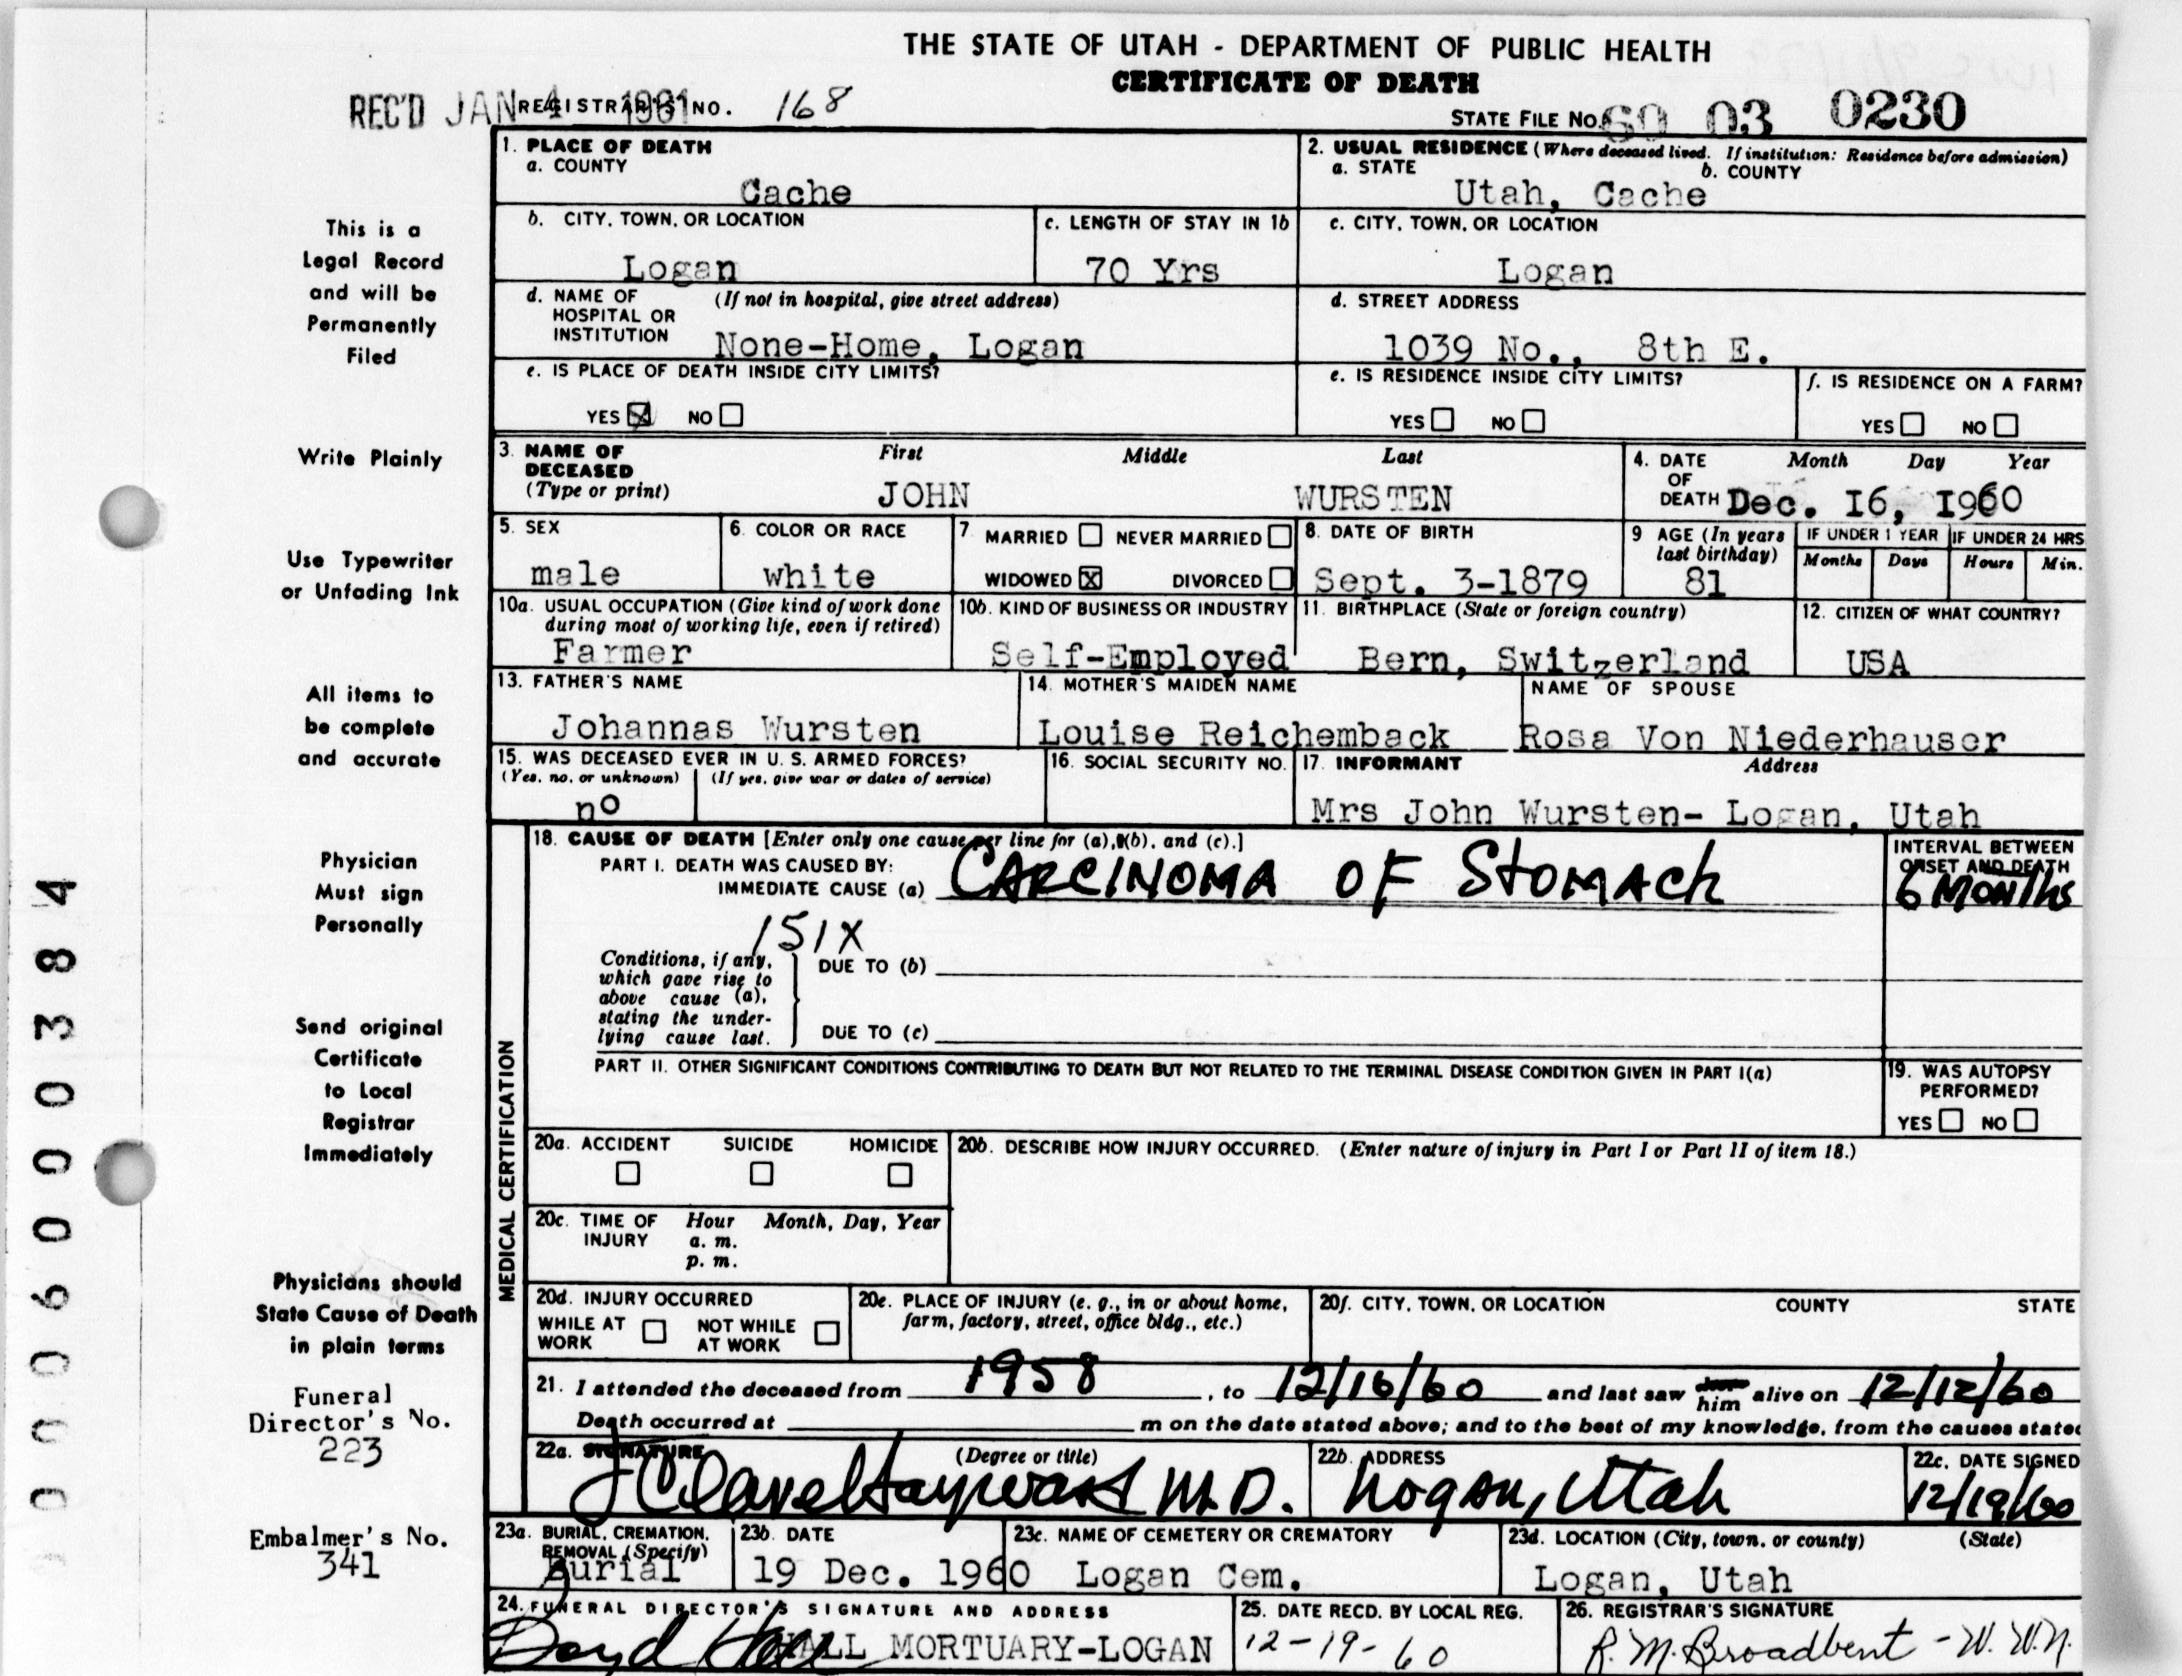 THE STATE OF UTAH - DEPARTMENT OF PUBLIC HEALTH
CERTIFICATE OF DEATH
REC'D JAN 4 1961 REGISTRAR'S NO. 168
STATE FILE NO. 60 03 0230
1. PLACE OF DEATH
a. COUNTY
Cache
2. USUAL RESIDENCE (Where deceased lived. If institution: Residence before admission)
a. STATE b. COUNTY
Utah, Cache
b. CITY, TOWN, OR LOCATION
Logan
c. LENGTH OF STAY IN 1b
70 Yrs
c. CITY, TOWN, OR LOCATION
Logan
d. NAME OF HOSPITAL OR INSTITUTION (If not in hospital, give street address)
None-Home, Logan
d. STREET ADDRESS
1039 No., 8th E.
e. IS PLACE OF DEATH INSIDE CITY LIMITS?
YES X NO
e. IS RESIDENCE INSIDE CITY LIMITS?
YES NO
f. IS RESIDENCE ON A FARM?
YES NO
3. NAME OF DECEASED (Type or print)
First Middle Last
JOHN WURSTEN
4. DATE OF DEATH Month Day Year
Dec. 16, 1960
5. SEX
male
6. COLOR OR RACE
white
7. MARRIED NEVER MARRIED
WIDOWED X DIVORCED
8. DATE OF BIRTH
Sept. 3-1879
9 AGE (In years last birthday)
81
IF UNDER 1 YEAR
Months Days
IF UNDER 24 HRS
Hours Min.
10a. USUAL OCCUPATION (Give kind of work done during most of working life, even if retired)
Farmer
10b. KIND OF BUSINESS OR INDUSTRY
Self-Employed
11. BIRTHPLACE (State or foreign country)
Bern, Switzerland
12. CITIZEN OF WHAT COUNTRY?
USA
13. FATHER'S NAME
Johannas Wursten
14. MOTHER'S MAIDEN NAME
Louise Reichemback
NAME OF SPOUSE
Rosa Von Niederhauser
15. WAS DECEASED EVER IN U. S. ARMED FORCES?
(Yes, no, or unknown) (If yes, give war or dates of service)
no
16. SOCIAL SECURITY NO.
17. INFORMANT Address
Mrs John Wursten- Logan, Utah
MEDICAL CERTIFICATION
18. CAUSE OF DEATH [Enter only one cause per line for (a), (b), and (c).]
PART I. DEATH WAS CAUSED BY:
IMMEDIATE CAUSE (a) CARCINOMA OF STOMACh
INTERVAL BETWEEN ONSET AND DEATH
6 MONThs
151X
Conditions, if any, which gave rise to above cause (a), stating the under-lying cause last.
DUE TO (b)
DUE TO (c)
PART II. OTHER SIGNIFICANT CONDITIONS CONTRIBUTING TO DEATH BUT NOT RELATED TO THE TERMINAL DISEASE CONDITION GIVEN IN PART I(a)
19. WAS AUTOPSY PERFORMED?
YES NO
20a. ACCIDENT SUICIDE HOMICIDE
20b. DESCRIBE HOW INJURY OCCURRED. (Enter nature of injury in Part I or Part II of item 18.)
20c. TIME OF INJURY Hour Month, Day, Year
a. m.
p. m.
20d. INJURY OCCURRED
WHILE AT WORK NOT WHILE AT WORK
20e. PLACE OF INJURY (e. g., in or about home, farm, factory, street, office bldg., etc.)
20f. CITY, TOWN, OR LOCATION COUNTY STATE
21. I attended the deceased from 1958, to 12/16/60 and last saw him alive on 12/12/60
Death occurred at m on the date stated above; and to the best of my knowledge, from the causes stated
22a. SIGNATURE (Degree or title)
J Clare Hayward M.D.
22b. ADDRESS
Logan, Utah
22c. DATE SIGNED
12/19/60
23a. BURIAL, CREMATION, REMOVAL (Specify)
Burial
23b. DATE
19 Dec. 1960
23c. NAME OF CEMETERY OR CREMATORY
Logan Cem.
23d. LOCATION (City, town, or county) (State)
Logan, Utah
24. FUNERAL DIRECTOR'S SIGNATURE AND ADDRESS
Boyd Hall HALL MORTUARY-LOGAN
25. DATE RECD. BY LOCAL REG.
12-19-60
26. REGISTRAR'S SIGNATURE
R. M. Broadbent - W. W. N.
This is a
Legal Record
and will be
Permanently
Filed
Write Plainly
Use Typewriter
or Unfading Ink
All items to
be complete
and accurate
Physician
Must sign
Personally
Send original
Certificate
to Local
Registrar
Immediately
Physicians should
State Cause of Death
in plain terms
Funeral
Director's No.
223
Embalmer's No.
341
00006000384